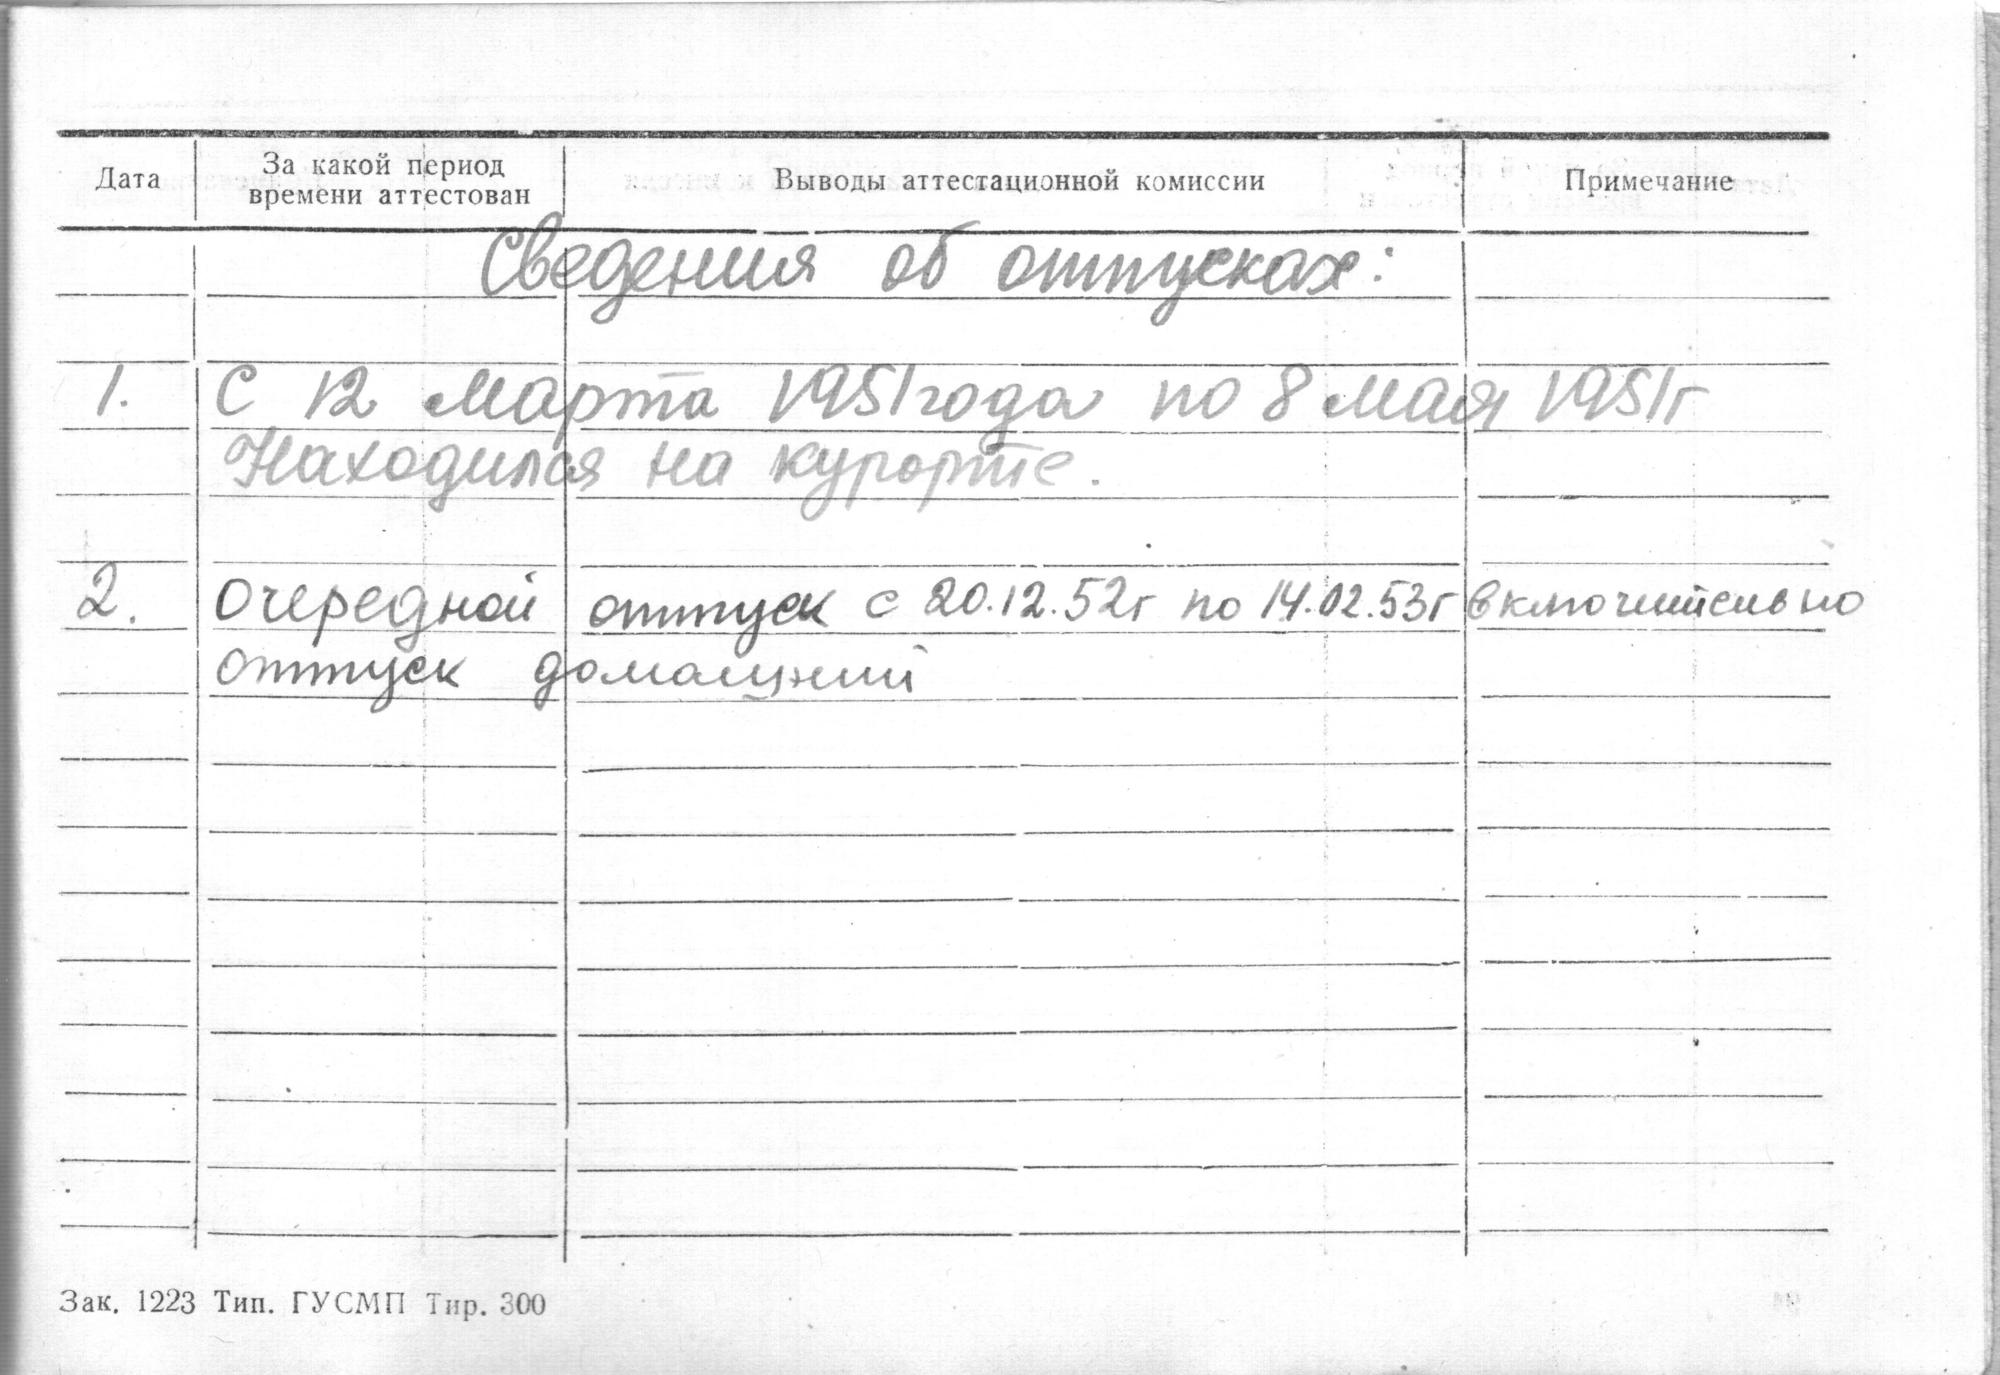 Дата
За какой период
времени аттестован
Выводы аттестационной комиссии
Примечание
Сведения об отпусках:
1. С 12 марта 1951 года по 8 мая 1951 г
Находился на курорте.
2. Очередной отпуск с 20.12.52г по 14.02.53г включительно
отпуск домашний
Зак. 1223 Тип. ГУСМП Тир. 300